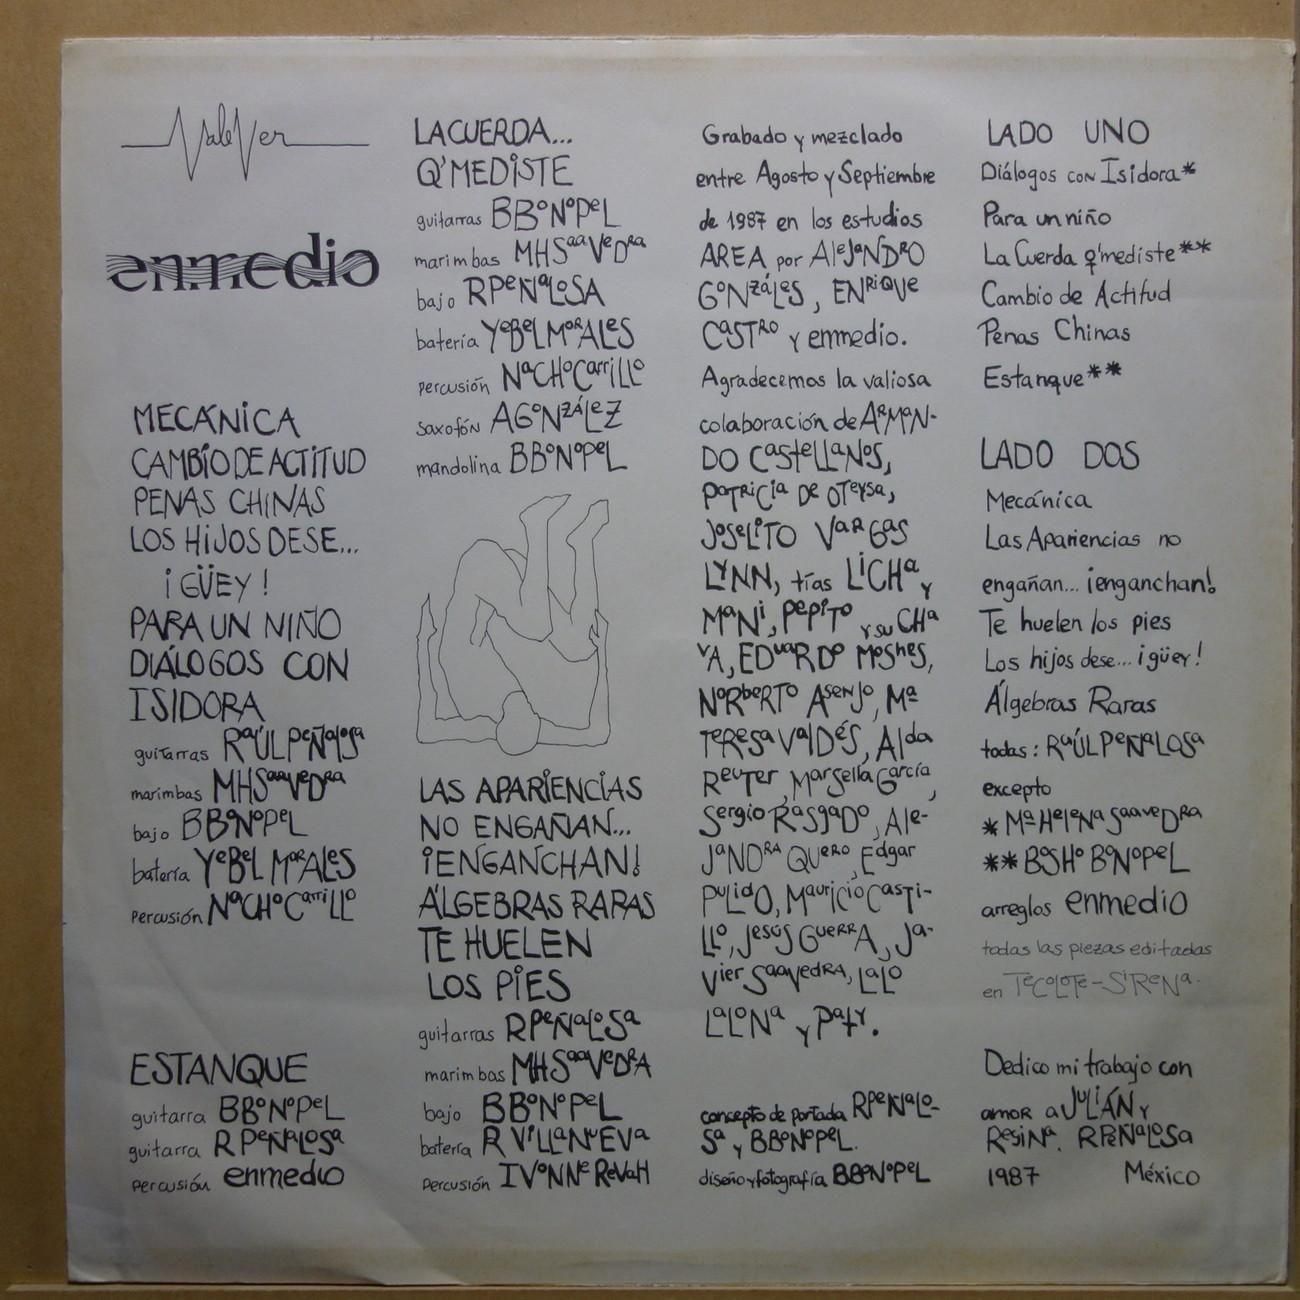 ValeVer
enmedio
MECÁNICA
CAMBIO DE ACTITUD
PENAS CHINAS
LOS HIJOS DESE...
¡GÜEY!
PARA UN NIÑO
DIÁLOGOS CON
ISIDORA
guitarras RAÚL PEÑALOSA
marimbas MHSaaVeDRa
bajo BBONOPeL
batería YeBeL MORALES
percusión NaCHO Carrillo
ESTANQUE
guitarra BBONOPeL
guitarra R PeÑALOSa
percusión enmedio
LA CUERDA...
Q'MEDISTE
guitarras BBONOPeL
marimbas MHSaaVeDRa
bajo RPEÑALOSA
batería YeBeL MORALES
percusión NaCHO Carrillo
saxofón AGONZÁLEZ
mandolina BBONOPeL
LAS APARIENCIAS
NO ENGAÑAN...
¡ENGANCHAN!
ÁLGEBRAS RARAS
TE HUELEN
LOS PIES
guitarras RPeÑALOSa
marimbas MHSaaVeDRA
bajo BBONOPeL
batería R VILLANUEVa
percusión IVONNe ReVaH
Grabado y mezclado
entre Agosto y Septiembre
de 1987 en los estudios
AREA por ALeJaNDRO
GONzáLeS, ENRiQUe
CaSTRO y enmedio.
Agradecemos la valiosa
colaboración de ARMAN-
DO CasteLLaNOS,
PaTRiCia De OTeysa,
JOSeLiTO VaRGaS
LYNN, tías LiCHa y
MaNi, PePiTO y su CHa
VA, EDuaRDO MOShes,
NORbeRTO Asenjo, Mª
TeResa VaLDÉS, ALda
ReuTeR, Marsella García,
Sergio RasgaDO, ALe-
JaNDRA QUeRO, Edgar
PuLiDO, Mauricio CaSTi-
LLO, Jesús GueRRA, Ja-
vier SaaveDRA, LaLO
LaLONa y Paty.
concepto de portada RPeÑaLO-
Sa y BBONOPeL.
diseño y fotografía BBONOPeL
LADO UNO
Diálogos con Isidora*
Para un niño
La Cuerda q'mediste**
Cambio de Actitud
Penas Chinas
Estanque**
LADO DOS
Mecánica
Las Apariencias no
engañan... ¡enganchan!
Te huelen los pies
Los hijos dese... ¡güey!
Álgebras Raras
todas: RAÚL PEÑALOSA
excepto
* Mª HeLeNa SaaVeDRa
** BOSHO BONOPeL
arreglos enmedio
todas las piezas editadas
en TeCOLOTe-SiReNa.
Dedico mi trabajo con
amor a JULIÁN y
ReGiNa. RPEÑALOSa
1987 México